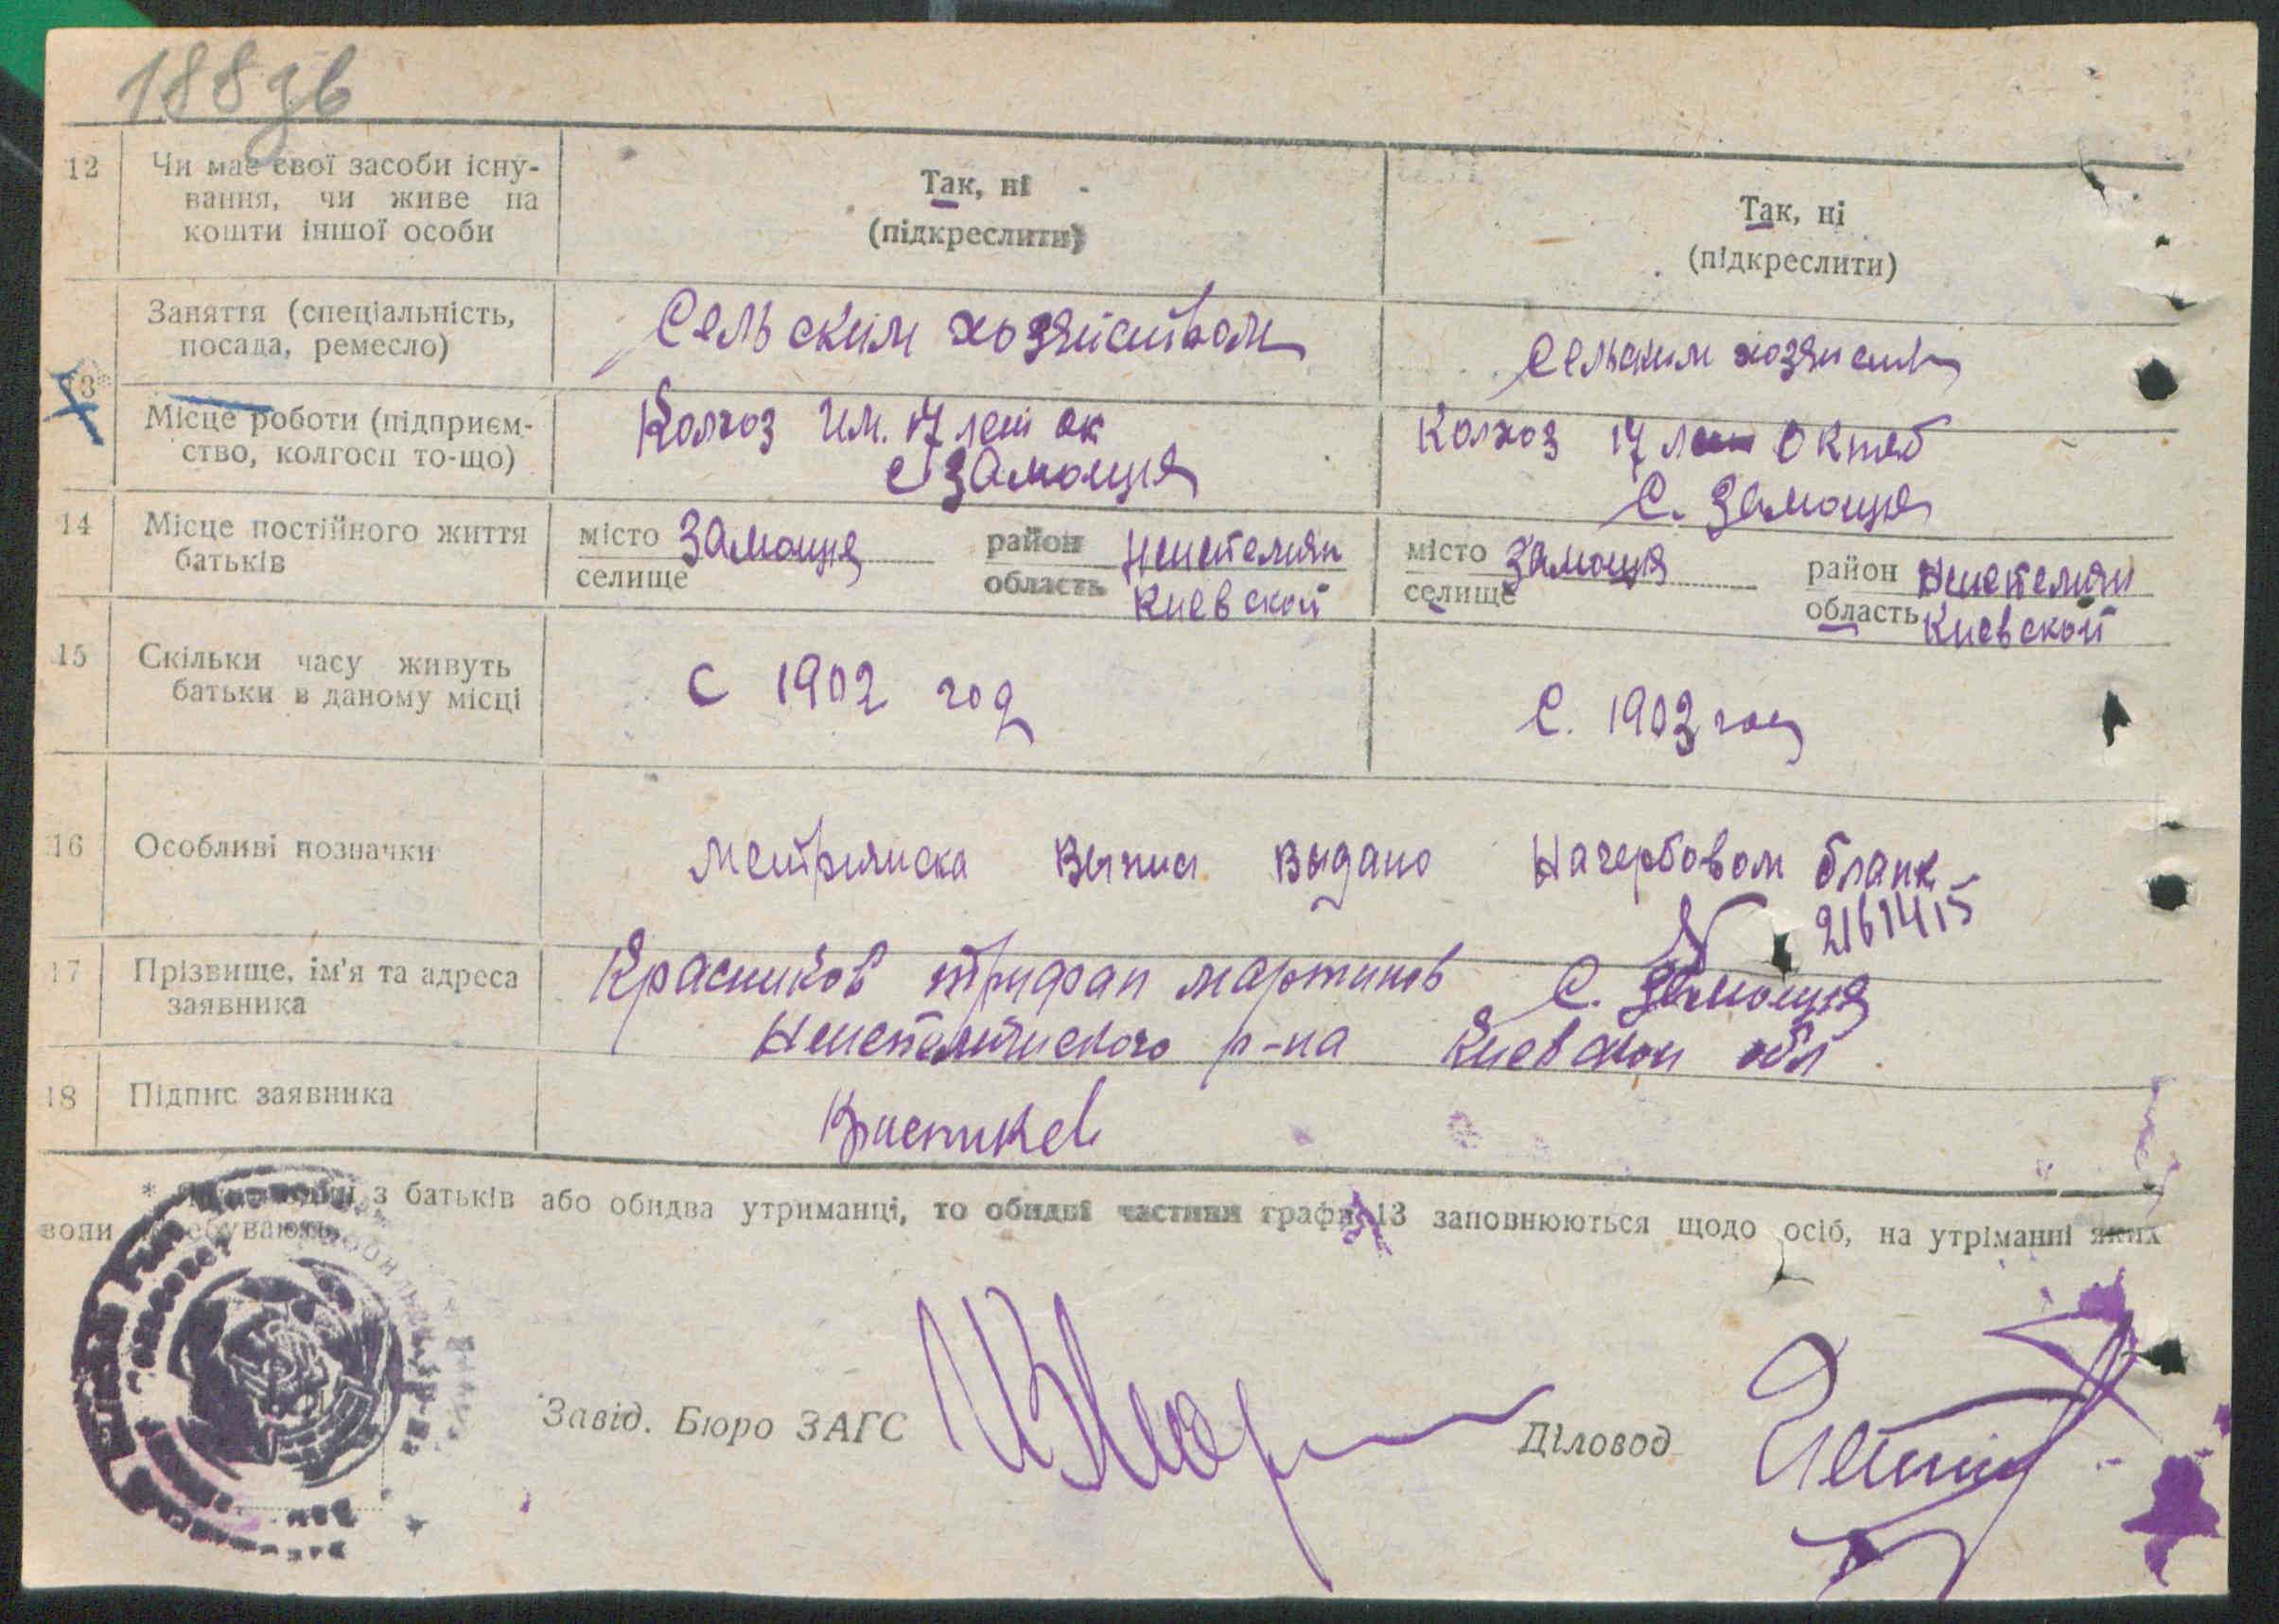 188зв
12 Чи має свої засоби існу-
вання, чи живе на
кошти іншої особи
Так, ні
(підкреслити)
Так, ні
(підкреслити)
13
Заняття (спеціальність,
посада, ремесло)
Сельским хозяйством
Сельским хозяиств
Місце роботи (підприєм-
ство, колгосп то-що)
Колхоз им. 17 лет ок
с Замощня
Колхоз 17 лет Октяб
С. Замощня
14 Місце постійного життя
батьків
місто Замощня район
селище область Киевской
місто Замощня район
селище область Киевской
15 Скільки часу живуть
батьки в даному місці
С 1902 год
С. 1903 год
16 Особливі позначки
Выпис выдано Нагербовом бланк
№ 2161415
17 Прізвище, ім'я та адреса
заявника
Красников Трифан Мартинов С. Замощня
р-на Киевской обл
18 Підпис заявника
* з батьків або обидва утриманці, то обидві частини графи 13 заповнюються щодо осіб, на утріманні яких
вони
Завід. Бюро ЗАГС
Діловод